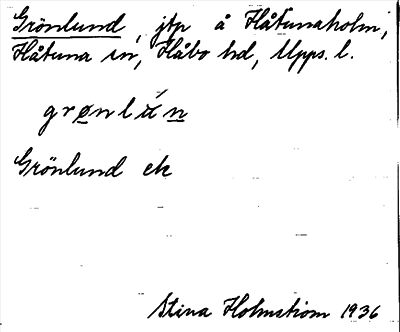 Grönlund, jtp å Håtunaholm,
Håtuna sn, Håbo hd, Upps. l.
Grönlund ek
Stina Holmström 1936